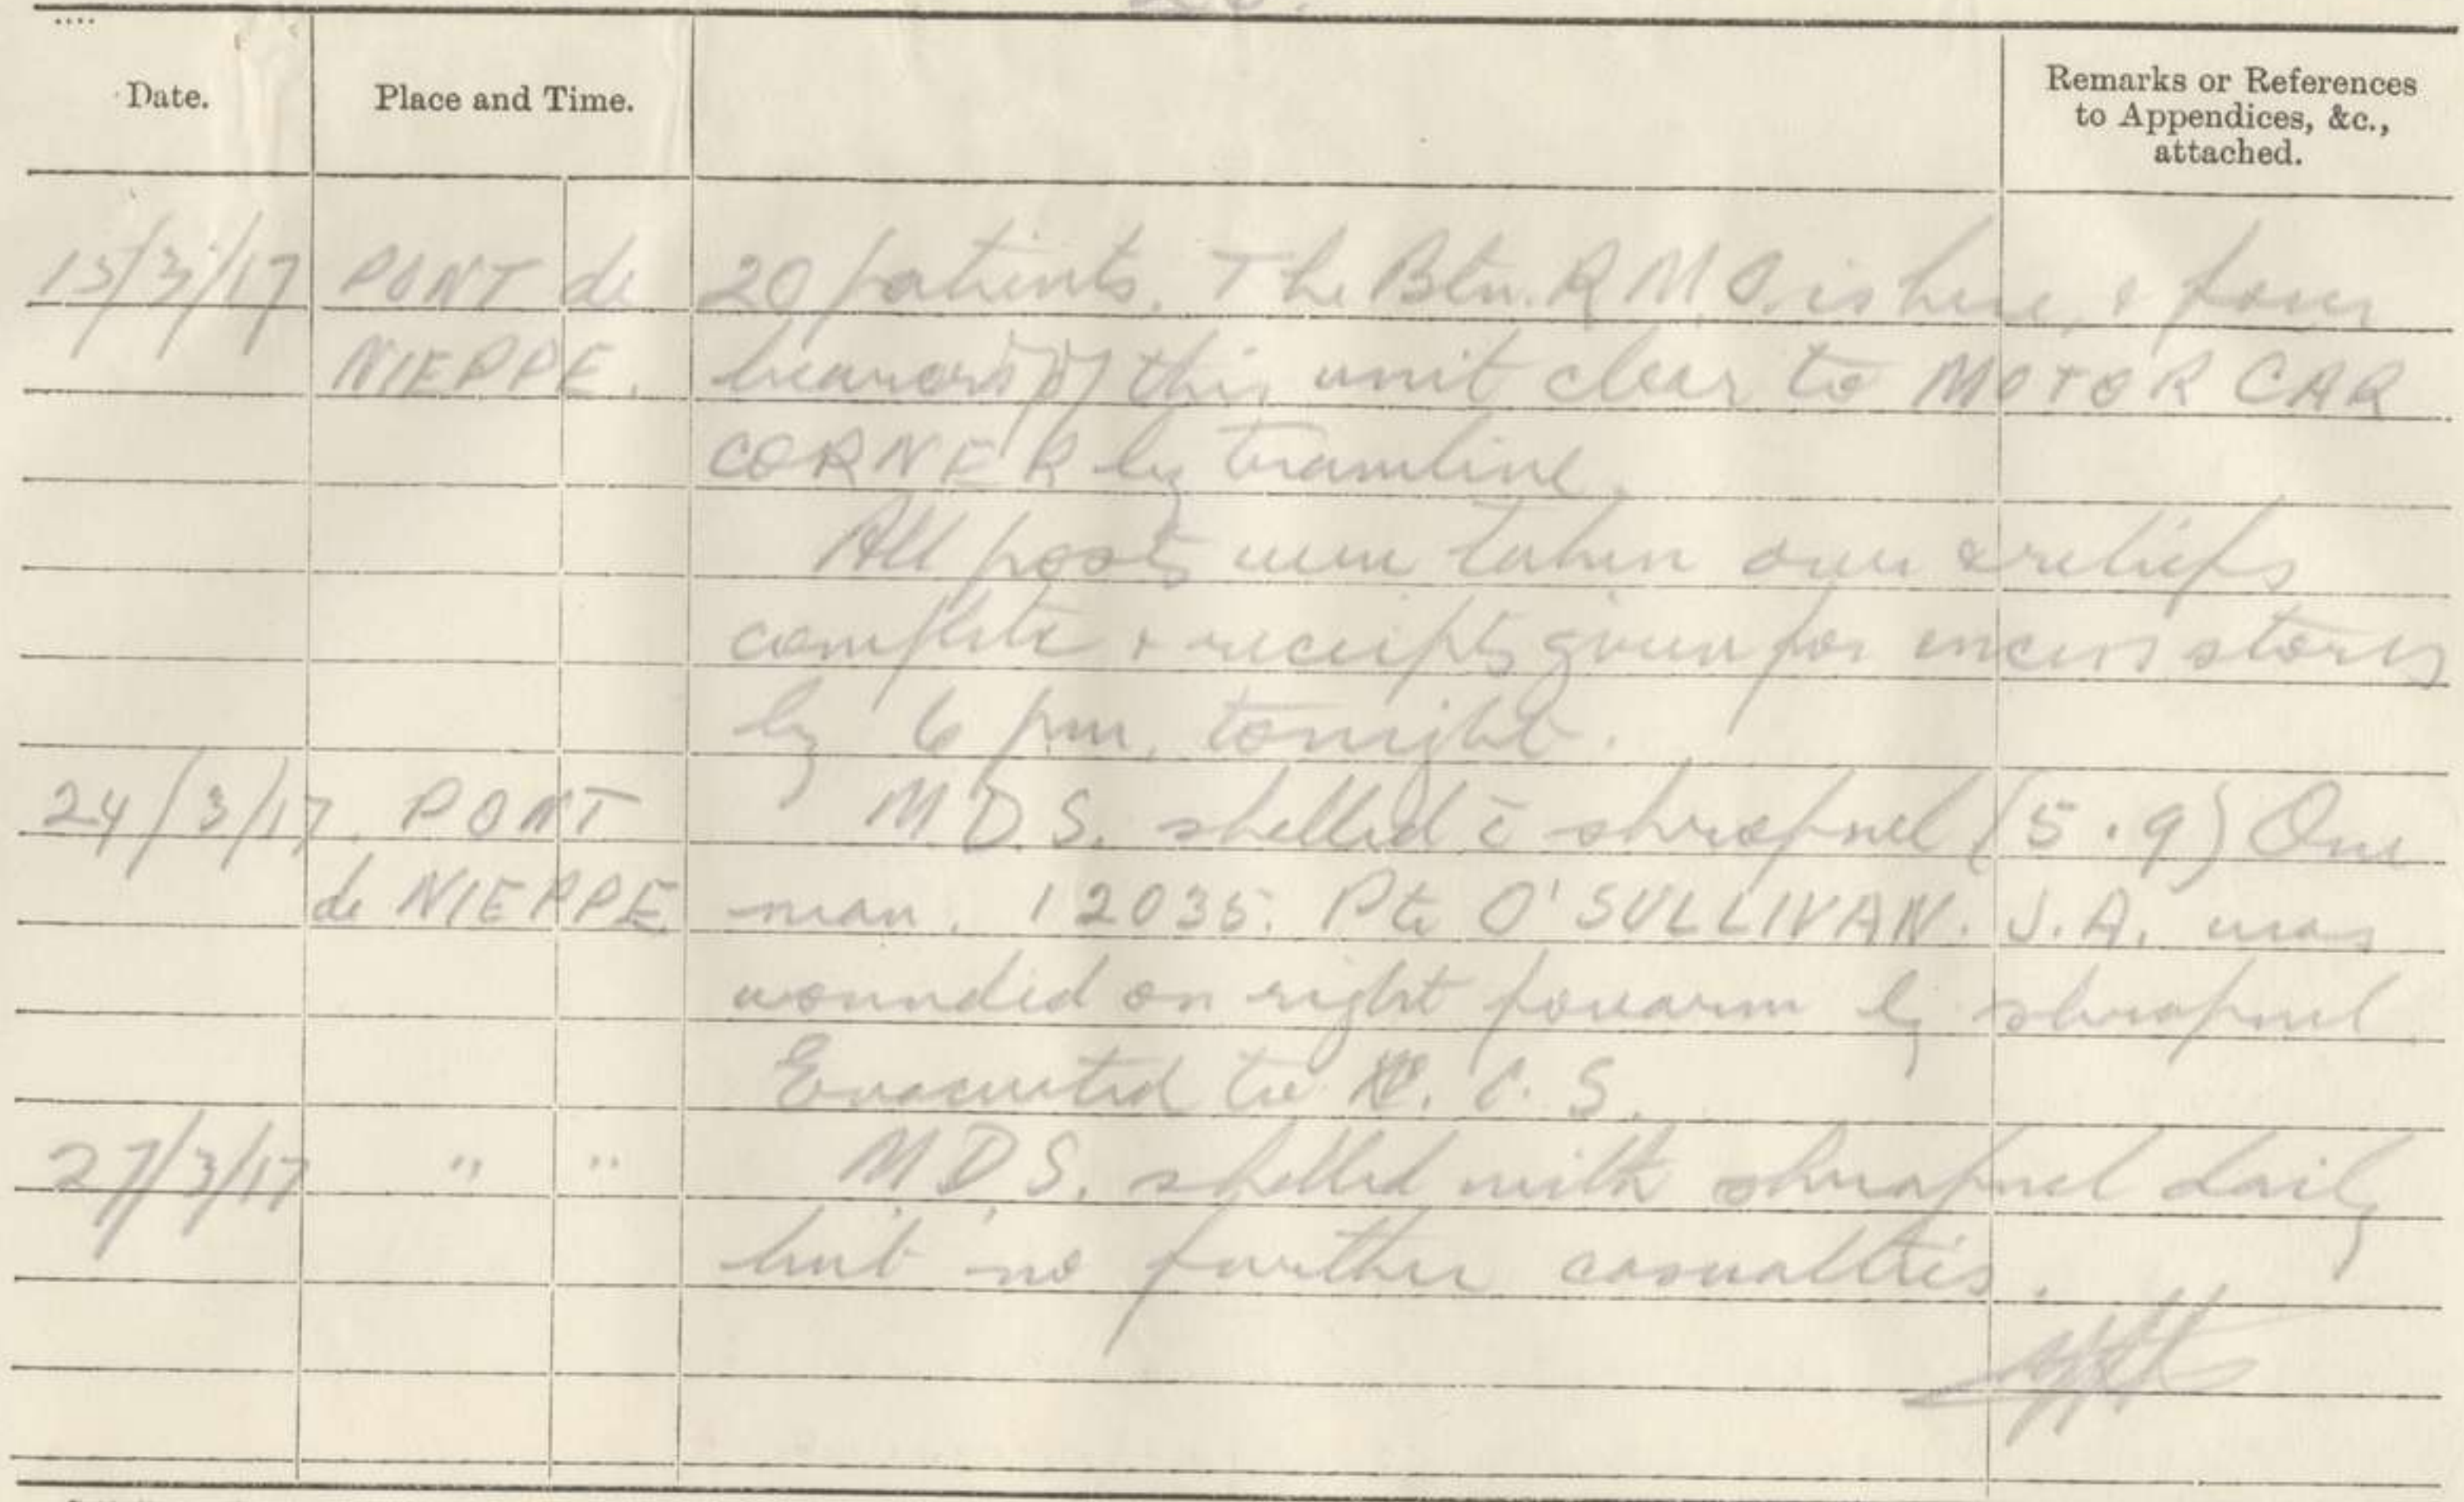 Date.
Place and Time.
Remarks or References
to Appendices, &c.,
attached.
13/3/17 PONT de 20 patients. The Btn. R M.O. is here, & four
NIEPPE. bearers of this unit clear to MOTOR CAR
CORNER by tramline.
All posts were taken over & reliefs
complete & receipts given for excess stores
by 6 pm. tonight.
24/3/17. PONT M.D.S. shelled c̄ shrapnel (5.9) One
de NIEPPE man. 12035. Pte O'SULLIVAN. J.A. was
wounded on right forearm by shrapnel
Evacuated to C. S.
27/3/17 " " M.D.S. shelled with shrapnel daily
but no further casualties.